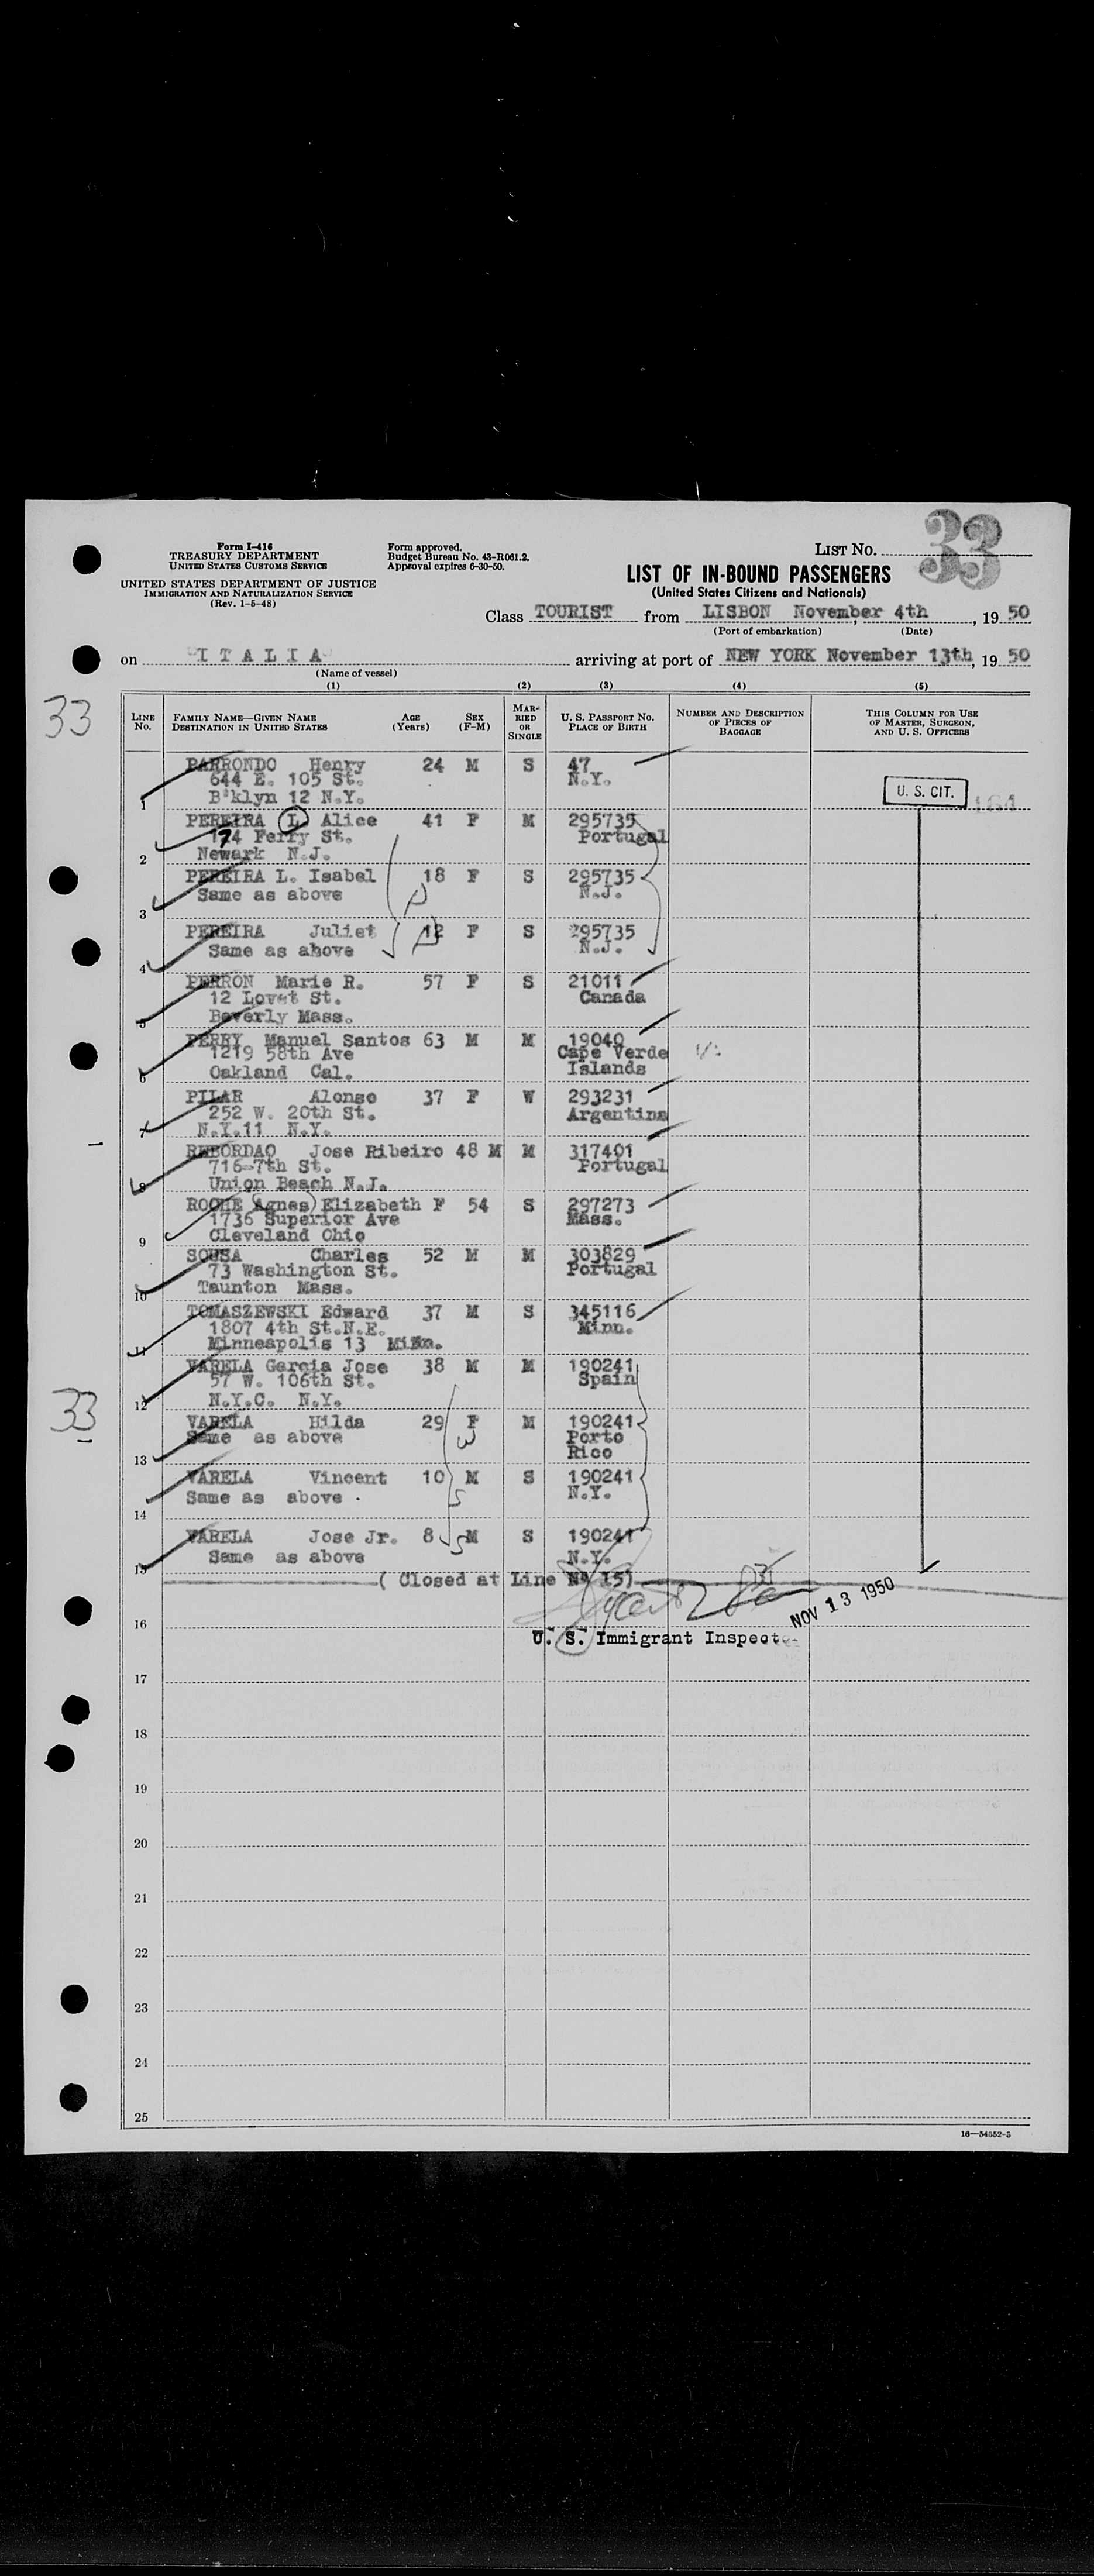 Form I-416
TREASURY DEPARTMENT
UNITED STATES CUSTOMS SERVICE
UNITED STATES DEPARTMENT OF JUSTICE
IMMIGRATION AND NATURALIZATION SERVICE
(Rev. 1-5-48)
Form approved.
Budget Bureau No. 43-R061.2.
Approval expires 6-30-50.
LIST No. 33
LIST OF IN-BOUND PASSENGERS
(United States Citizens and Nationals)
Class TOURIST from LISBON November 4th, 19 50
(Port of embarkation) (Date)
on "I T A L I A" arriving at port of NEW YORK November 13th, 19 50
(Name of vessel)
(1) (2) (3) (4) (5)
33
LINE No. FAMILY NAME—GIVEN NAME DESTINATION IN UNITED STATES AGE (Years) SEX (F-M) MARRIED OR SINGLE U. S. PASSPORT No. PLACE OF BIRTH NUMBER AND DESCRIPTION OF PIECES OF BAGGAGE THIS COLUMN FOR USE OF MASTER, SURGEON, AND U. S. OFFICERS
PARRONDO Henry 24 M S 47
644 E. 105 St. N.Y.
1 B'klyn 12 N.Y. U. S. CIT.
PEREIRA L. Alice 41 F M 295735
174 Ferry St. Portugal
2 Newark N.J.
PEREIRA L. Isabel 18 F S 295735
Same as above N.J.
3
PEREIRA Juliet 12 F S 295735
Same as above N.J.
4
PERRON Marie R. 57 F S 21011
12 Lovet St. Canada
5 Beverly Mass.
PERRY Manuel Santos 63 M M 19040
1219 58th Ave Cape Verde
6 Oakland Cal. Islands
PILAR Alonso 37 F W 293231
252 W. 20th St. Argentina
7 N.Y.11 N.Y.
REBORDAO Jose Ribeiro 48 M M 317401
716-7th St. Portugal
8 Union Beach N.J.
ROCHE Agnes Elizabeth F 54 S 297273
1736 Superior Ave Mass.
9 Cleveland Ohio
SOUSA Charles 52 M M 303829
73 Washington St. Portugal
10 Taunton Mass.
TOMASZEWSKI Edward 37 M S 345116
1807 4th St.N.E. Minn.
11 Minneapolis 13 Minn.
VARELA Garcia Jose 38 M M 190241
57 W. 106th St. Spain
12 N.Y.C. N.Y.
33
VARELA Hilda 29 F M 190241
Same as above Porto
13 Rico
VARELA Vincent 10 M S 190241
Same as above N.Y.
14
VARELA Jose Jr. 8 M S 190241
Same as above N.Y.
15
( Closed at Line Nº 15)
NOV 13 1950
16
U. S. Immigrant Inspect
17
18
19
20
21
22
23
24
25
16—54552-3